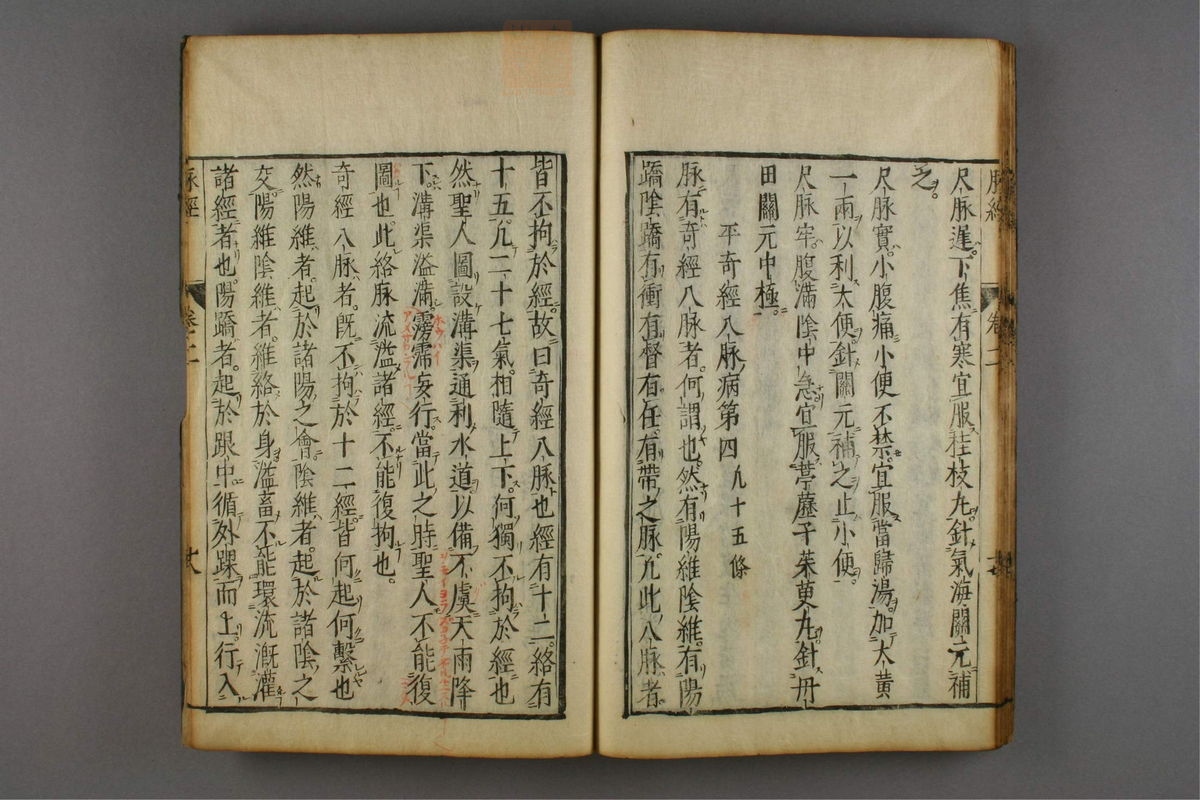 尺脉遲下焦有寒宜服桂枝丸針氣海關元補
之
尺脉實小腹痛小便不禁宜服當歸湯加大黄
一兩以利大便針關元補之止小便
尺脉牢腹滿陰中急宜服葶藶子茱萸丸針丹
田關元中極
平奇經八脉病第四 凡十五條
脉有奇經八脉者何謂也然有陽維陰維有陽
蹻陰蹻有衝有督有任有帶之脉凡此八脉者
皆不拘於經故曰奇經八脉也經有十二絡有
十五凡二十七氣相隨上下何獨不拘於經也
然聖人圖設溝渠通利水道以備不虞天雨降
下溝渠溢滿霶霈妄行當此之時聖人不能復
圖也此絡脉流溢諸經不能復拘也
奇經八脉者既不拘於十二經皆何起何繫也
然陽維者起於諸陽之會陰維者起於諸陰之
交陽維陰維者維絡於身溢畜不能環流漑灌
諸經者也陽蹻者起於跟中循外踝而上行入
脉經 卷二